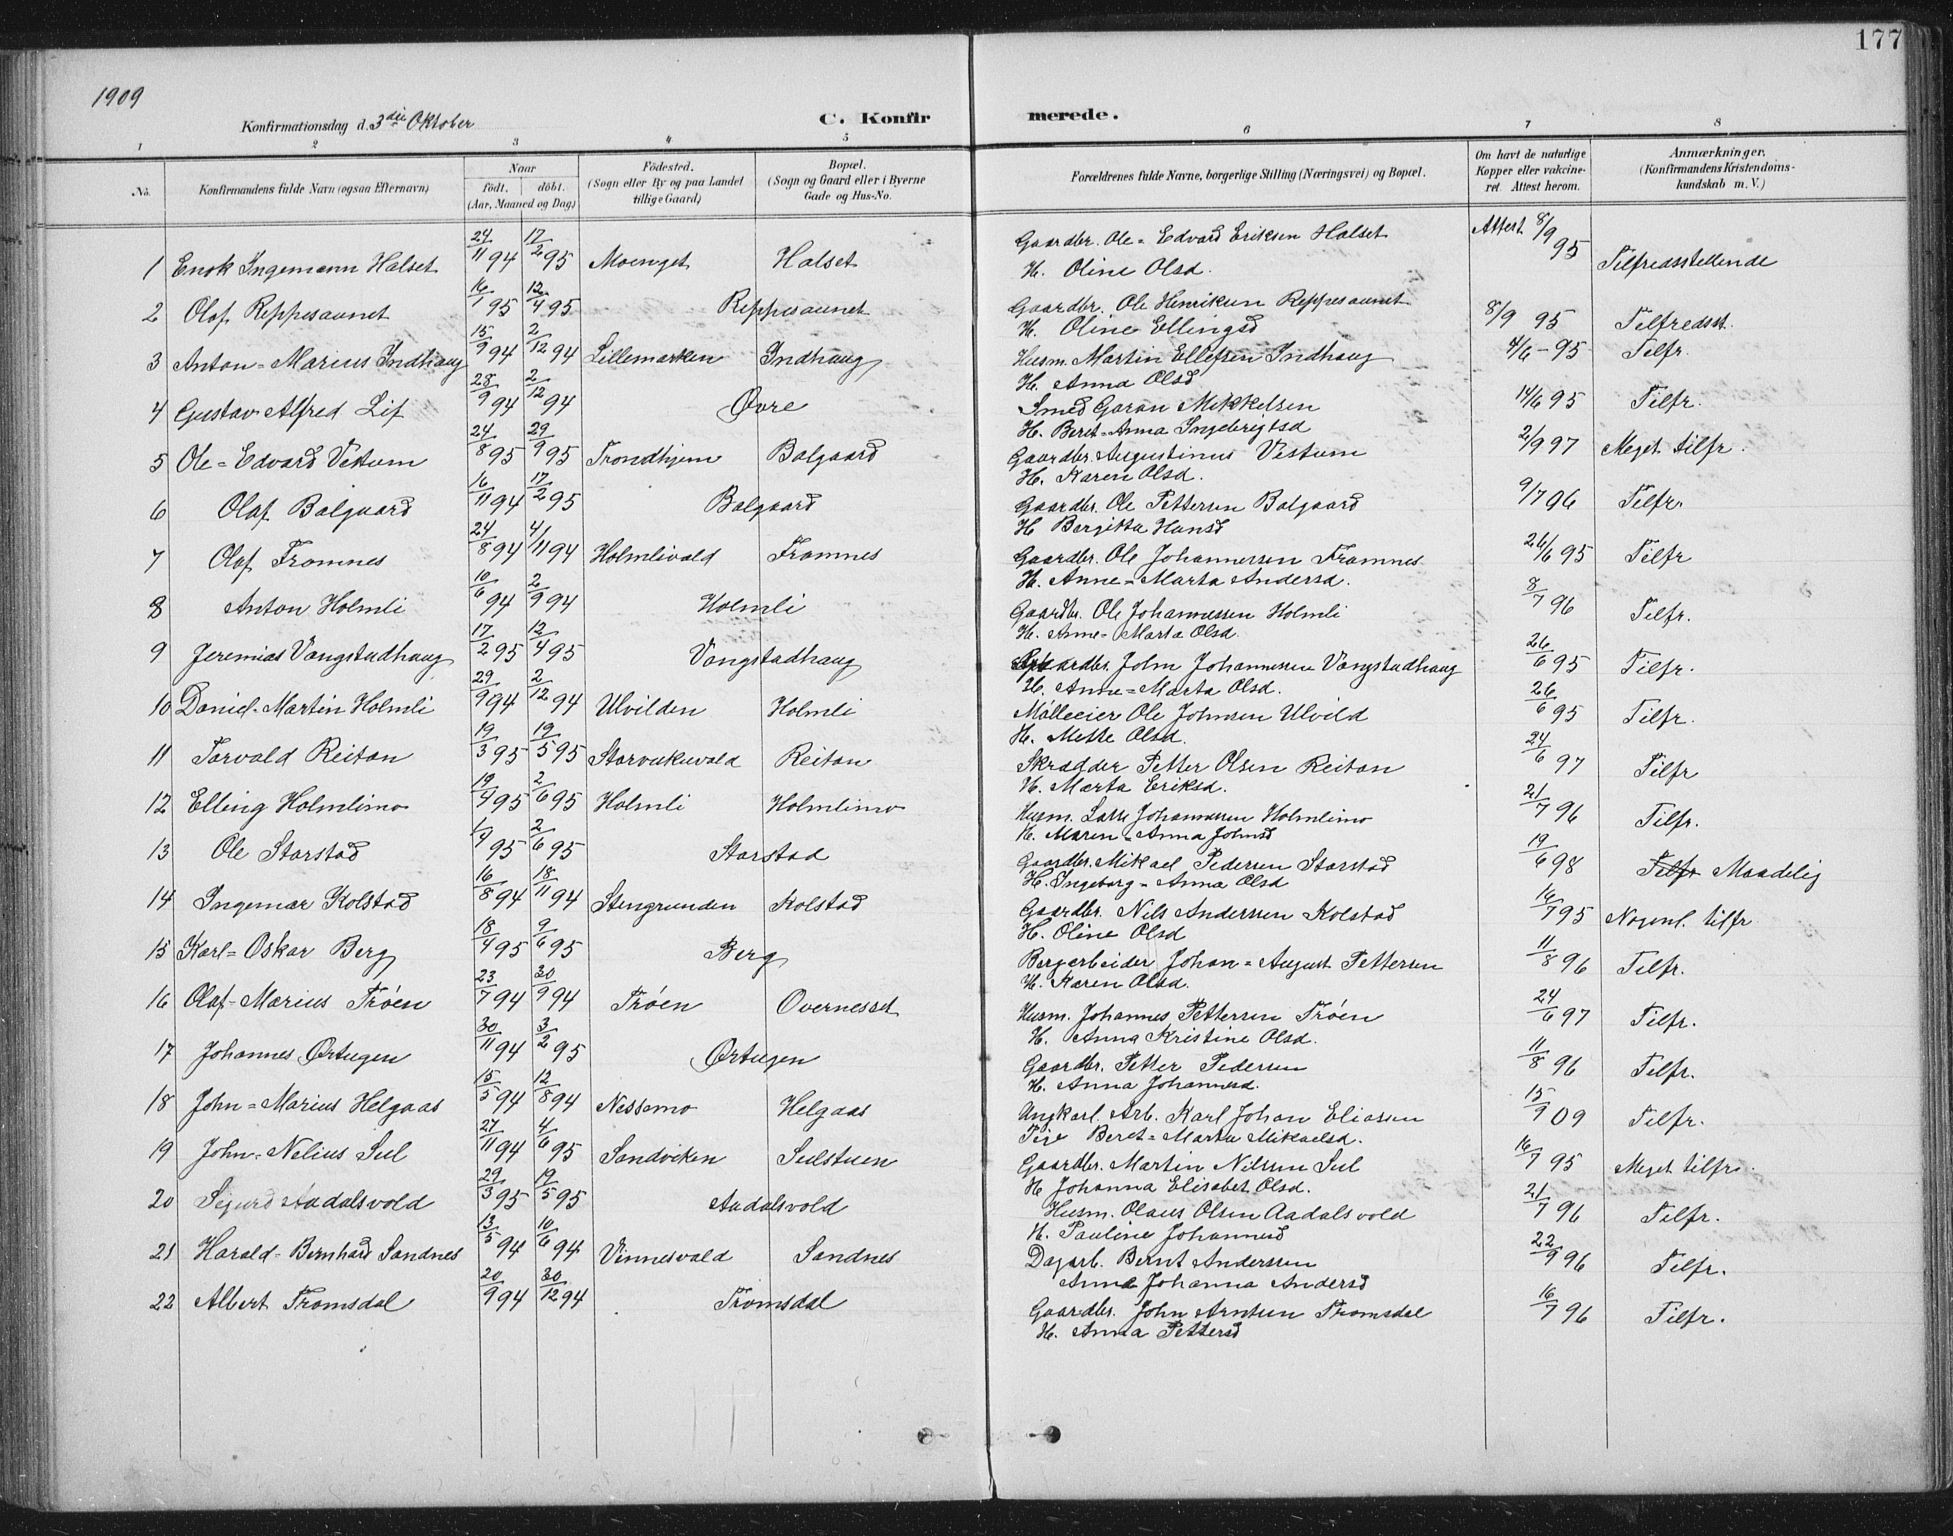 177
1909
Konfirmationsdag d. 3die Oktober
C. Konfirmerede.
1 2 3 4 5 6 7 8
No. Konfirmandens fulde Navn (ogsaa Efternavn) Naar født. døbt. (Aar, Maaned og Dag) Fødested. (Sogn eller By og paa Landet tillige Gaard) Bopæl. (Sogn og Gaard eller i Byerne Gade og Hus-No. Forældrenes fulde Navne, borgerlige Stilling (Næringsvei) og Bopæl. Om havt de naturlige Kopper eller vaccineret. Attest herom. Anmærkninger. (Konfirmandens Kristendomskundskab m. V.)
1 Enok Ingemann Halset 24/11 94 17/2 95 Moenget Halset Gaardbr. Ole-Edvard Eriksen Halset Attest 8/9 95 Tilfredsstellende
H. Oline Olsd.
2 Olaf Reppesaunet 16/1 95 12/4 95 Reppesaunet Gaardbr. Ole Henriksen Reppesaunet 8/9 95 Tilfredsst.
H. Oline Ellingsd
3 Anton-Marius Indhaug 15/9 94 2/12 94 Lillemarken Indhaug Husm. Martin Ellefsen Indhaug 4/6-95 Tilfr.
H. Anna Olsd
4 Gustav-Alfred Lif 28/9 94 2/12 94 Øvre Smed Goran Mikkelsen 14/6 95 Tilfr.
H. Beret-Anna Ingebrigtsd
5 Ole-Edvard Vestum 24/8 95 29/9 95 Trondhjem Balgaard Gaardbr. Augustinus Vestum 2/9 97 Meget tilfr.
H. Karen Olsd.
6 Olaf Balgaard 16/11 94 17/2 95 Balgaard Gaardbr. Ole Pettersen Balgaard 9/7 06 Tilfr.
H Bergitta Hansd
7 Olaf Framnes 24/8 94 4/11 94 Holmlivald Framnes Gaardbr. Ole Johannessen Framnes 26/6 95 Tilfr
H. Anne-Marta Andersd.
8 Anton Holmli 10/6 94 2/9 94 Holmli Gaardbr. Ole Johannessen Holmli 8/7 96 Tilfr.
H. Anne-Marta Olsd.
9 Jeremias Vangstadhaug 17/2 95 12/4 95 Vangstadhaug Gaardbr. John Johannessen Vangstadhaug 26/6 95 Tilfr.
H. Anne-Marta Olsd.
10 Daniel-Martin Holmli 29/9 94 2/12 94 Ulvilden Holmli Mølleeier Ole Johnsen Ulvild 26/6 95 Tilfr.
H. Mette Olsd.
11 Torvald Reitan 19/3 95 19/5 95 Storvukuvald Reitan Skrædder Petter Olsen Reitan 24/6 97 Tilfr
H. Marta Eriksd.
12 Elling Holmlimo 19/4 95 2/6 95 Holmli Holmlimo Husm. Lars Johannessen Holmlimo 21/7 96 Tilfr.
H. Maren-Anna Johnsd
13 Ole Storstad 1/4 95 2/6 95 Storstad Gaardbr. Mikael Pedersen Storstad 19/6 98 Tilfr Maadelig
H. Ingeborg-Anna Olsd
14 Ingemar Kolstad 16/8 94 18/11 94 Stengrunden Kolstad Gaardbr. Nils Andersen Kolstad 16/7 95 Nogenl. tilfr
H. Oline Olsd
15 Karl-Oskar Berg 18/4 95 9/6 95 Berg Bergarbeider Johan-August Pettersen 11/8 96 Tilfr.
H. Karen Olsd.
16 Olaf-Marius Trøen 23/7 94 30/9 94 Trøen Overnesset Husm. Johannes Pettersen Trøen 24/6 97 Tilfr.
H. Anna Kristine Olsd.
17 Johannes Ørtugen 30/11 94 3/2 95 Ørtugen Gaardbr. Petter Pedersen 11/8 96 Tilfr.
H. Anna Johannesd.
18 John-Marius Helgaas 15/5 94 12/8 94 Nessemo Helgaas Ungkarl, Arb. Karl Johan Eliasen 15/9 09 Tilfr.
Pige Beret-Marta Mikaelsd.
19 John-Nelius Sul 27/11 94 4/6 95 Sandviken Sulstuen Gaardbr. Martin Nilssen Sul 16/7 95 Meget tilfr.
H Johanna Elisabet Olsd.
20 Sigurd Aadalsvold 29/3 95 19/5 95 Aadalsvold Husm. Olaus Olsen Aadalsvold 21/7 96 Tilfr.
H. Pauline Johannesd
21 Harald-Bernhard Sandnes 13/5 94 10/6 94 Vinnesvald Sandnes Dagarb. Bernt Andersen 22/9 96 Tilfr.
Anna Johanna Andersd
22 Albert Tromsdal 20/9 94 30/12 94 Tromsdal Gaardbr. John Arntsen Tromsdal 16/7 96 Tilfr.
H. Anna Pettersd